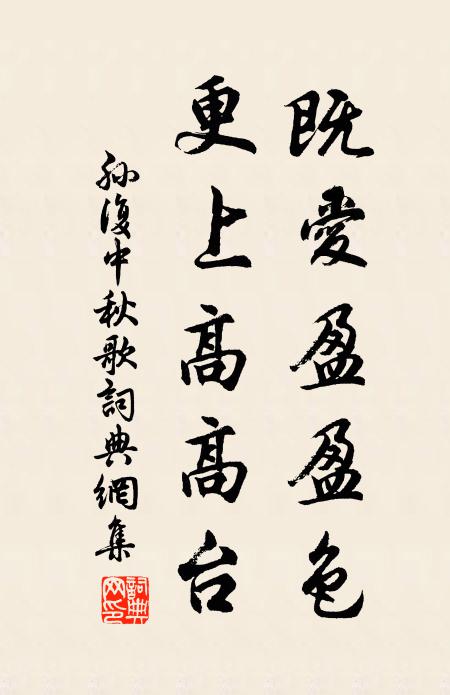 既愛盈盈色
更上高高台
孫復中秋歌詞典網集
詞典網印